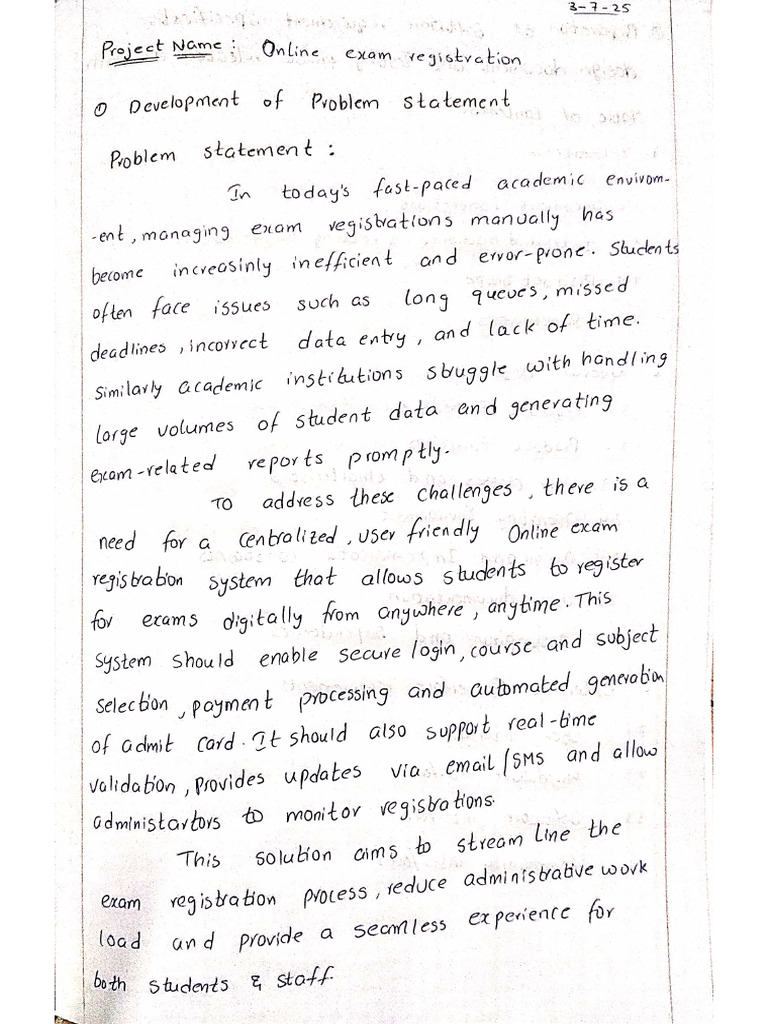 3-7-25
Project Name: Online exam registration
① Development of Problem statement
Problem statement:
In today's fast-paced academic envirom-
-ent, managing exam registrations manually has
become increasinly inefficient and error-prone. Students
often face issues such as long queues, missed
deadlines, incorrect data entry, and lack of time.
Similarly academic institutions struggle with handling
large volumes of student data and generating
exam-related reports promptly.
To address these challenges, there is a
need for a centralized, user friendly Online exam
registration system that allows students to register
for exams digitally from anywhere, anytime. This
System should enable secure login, course and subject
selection, payment processing and automated generation
of admit card. It should also support real-time
validation, provides updates via email/SMS and allow
administartors to monitor registrations.
This solution aims to stream line the
exam registration process, reduce administrative work
load and provide a seamless experience for
both students & staff.